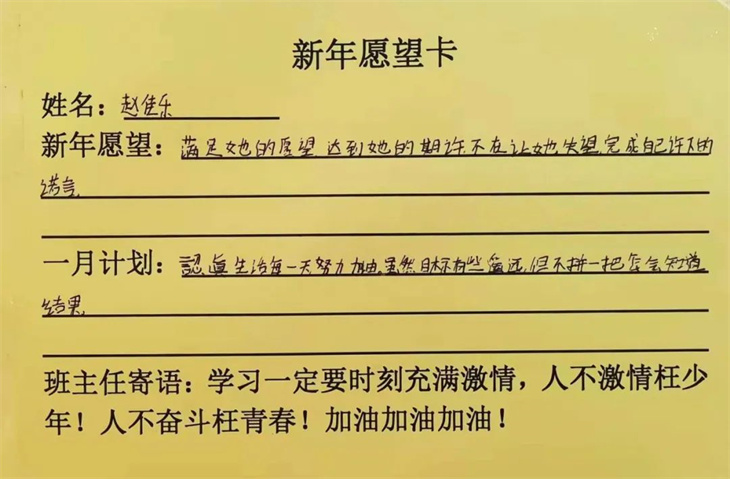 新年愿望卡
姓名：赵佳乐
新年愿望：满足她的愿望 达到她的期许，不在让她失望，完成自己许下的
诺言
一月计划：認真生活每一天努力加油。虽然目标有些遥远，但不拼一把怎会知道
结果
班主任寄语：学习一定要时刻充满激情，人不激情枉少
年！人不奋斗枉青春！加油加油加油！